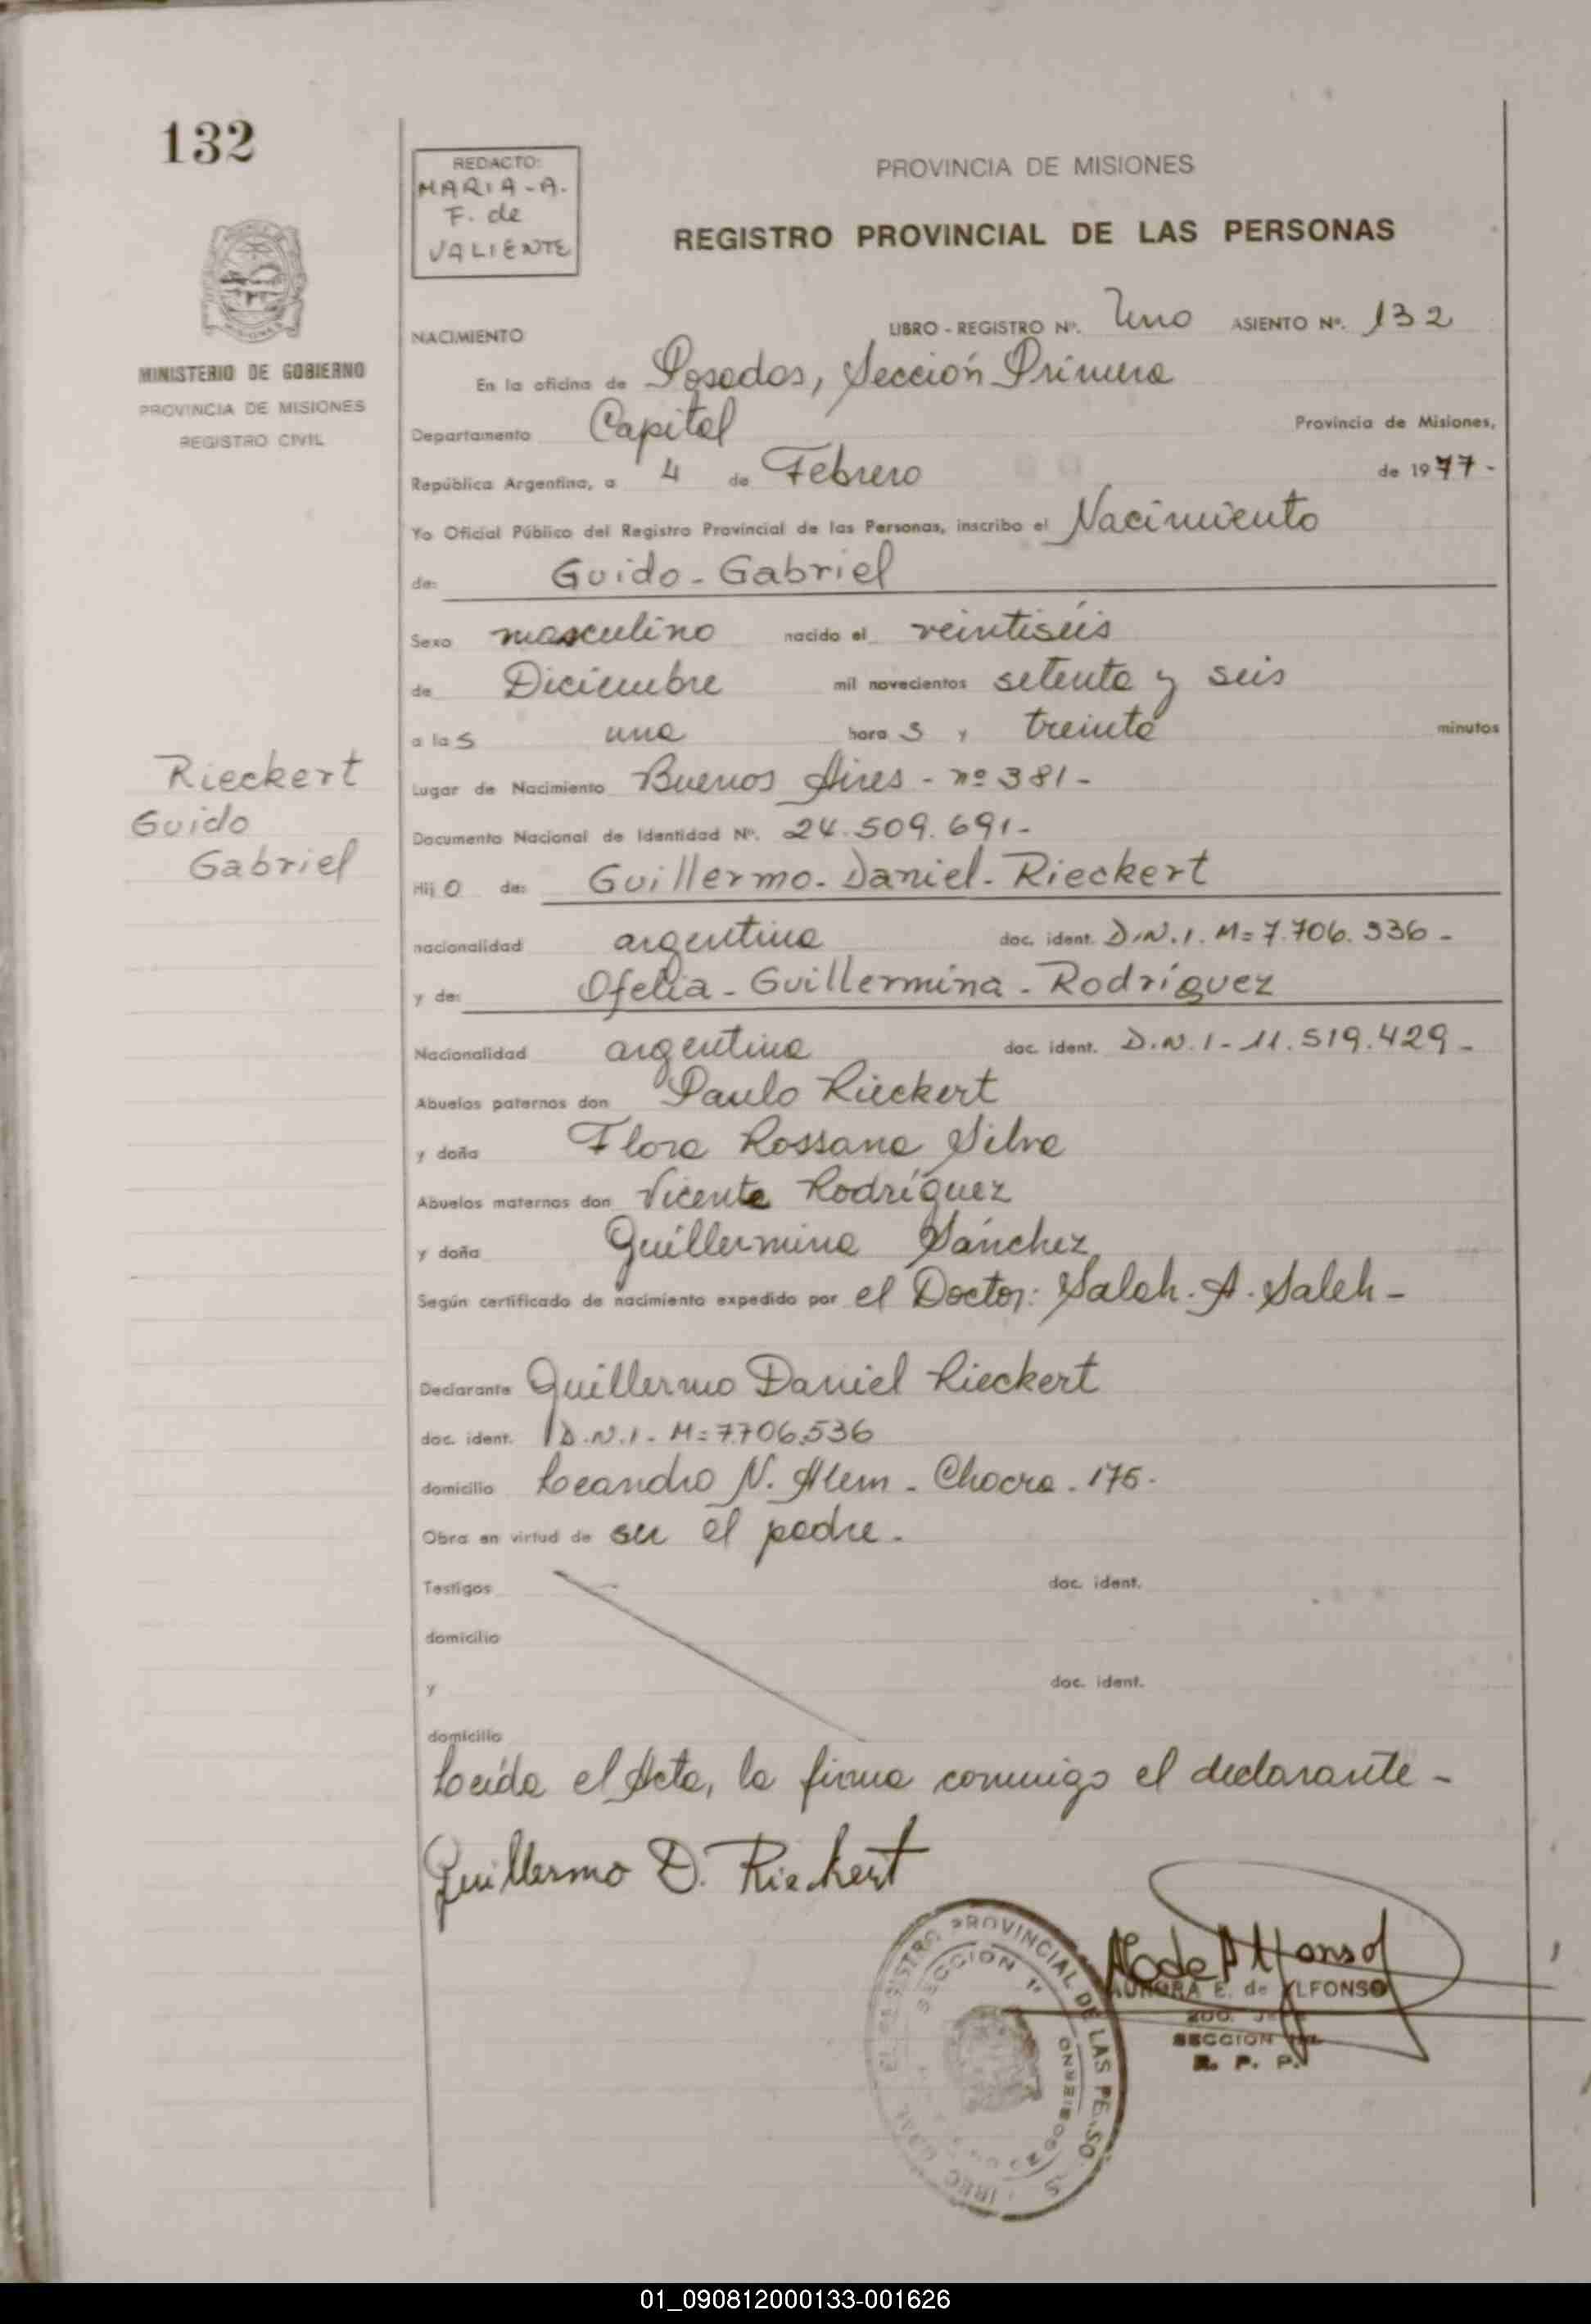 132
REDACTO:
MARIA-A.
F. de
VALIENTE
PROVINCIA DE MISIONES
REGISTRO PROVINCIAL DE LAS PERSONAS
MINISTERIO DE GOBIERNO
PROVINCIA DE MISIONES
REGISTRO CIVIL
NACIMIENTO
LIBRO - REGISTRO Nº. Uno ASIENTO Nº. 132
En la oficina de Posadas, Sección Primera
Departamento Capital Provincia de Misiones,
República Argentina, a 4 de Febrero de 1977-
Yo Oficial Público del Registro Provincial de las Personas, inscribo el Nacimiento
de: Guido-Gabriel
Sexo masculino nacido el veintiséis
de Diciembre mil novecientos setenta y seis
a las una horas y treinta minutos
Lugar de Nacimiento Buenos Aires - nº 381-
Documento Nacional de Identidad Nº. 24.509.691-
Rieckert
Guido
Gabriel
Hijo de: Guillermo-Daniel-Rieckert
nacionalidad argentina doc. ident. D.N.I. M=7.706.536-
y de: Ofelia-Guillermina-Rodríguez
Nacionalidad argentina doc. ident. D.N.I-11.519.429-
Abuelos paternos don Paulo Rieckert
y doña Flora Rossana Silva
Abuelos maternos don Vicente Rodríguez
y doña Guillermina Sánchez
Según certificado de nacimiento expedido por el Doctor: Saleh-A-Saleh-
Declarante Guillermo Daniel Rieckert
doc. ident. D.N.I- M=7.706.536
domicilio Leandro N. Alem - Chacra-175-
Obra en virtud de ser el padre-
Testigos doc. ident.
domicilio
y doc. ident.
domicilio
Leída el Acta, la firma conmigo el declarante-
Guillermo D. Rieckert
REGISTRO PROVINCIAL DE LAS
SECCION 1ª
AURORA E. de ALFONSO
SECCION
R. P. P.
01_090812000133-001626